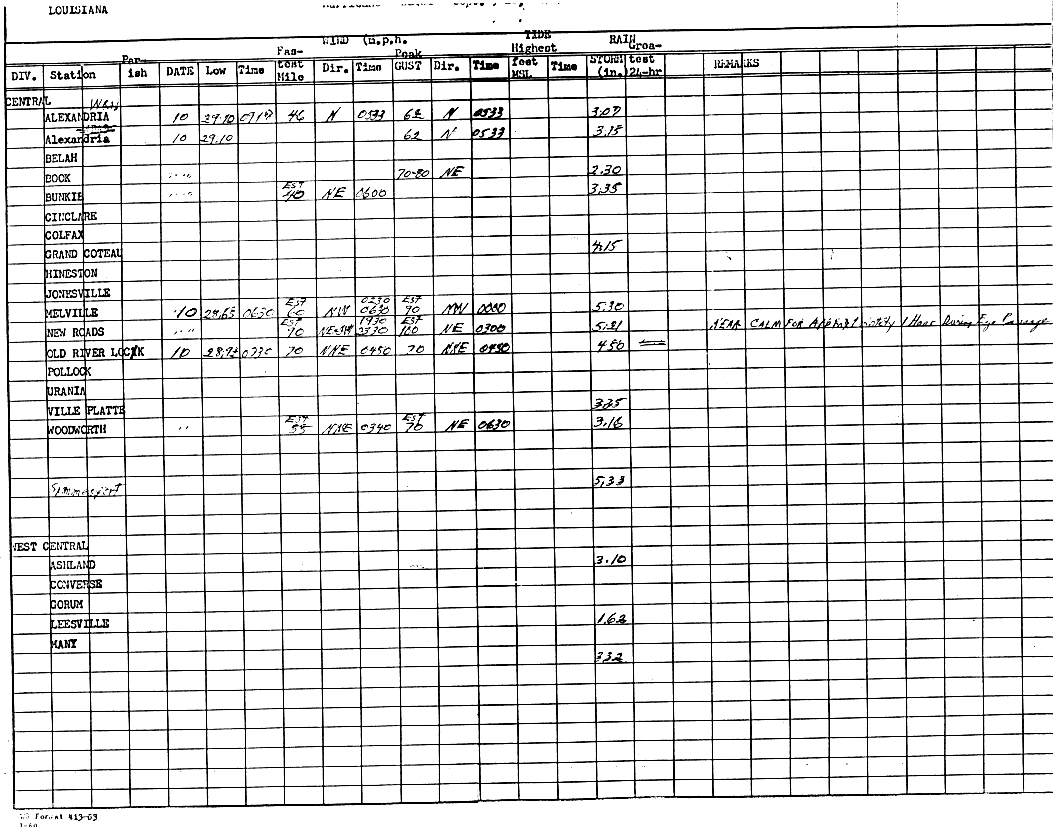 LOUISIANA
WIND (m.p.h. TIDE RAIN
Par- Fas- Peak Highest Grea-
DIV. Station ish DATE Low Time test Mile Dir. Time GUST Dir. Time feet MSL Time STORM (in.) test 24-hr REMARKS
CENTRAL
ALEXANDRIA 10 29.10 46 N 0533 62 N 0533 3.07
Alexandria 10 29.10 62 N 0533 3.15
BELAH
BOOK 70-80 NE 2.30
BUNKIE EST 40 NE 0600 3.35
CINCLARE
COLFAX
GRAND COTEAU 4.15
HINESTON
JONESVILLE
MELVILLE 10 28.65 0630 EST 60 NW 0230 0630 EST 90 NW 5.30
NEW ROADS EST 70 1930 0330 EST 100 NE 0300 5.21 NEAR CALM FOR Approximately 1 Hour During Eye Passage
OLD RIVER LOCK 10 70 NNE 0450 70 NNE 0450 4.50
POLLOCK
URANIA
VILLE PLATTE 3.25
WOODWORTH EST 55 NNE 0340 EST 70 NE 0630 3.16
Simmesport 5.33
WEST CENTRAL
ASHLAND 3.10
CONVERSE
GORUM
LEESVILLE 1.62
MANY
3.32
WB Format #13-63